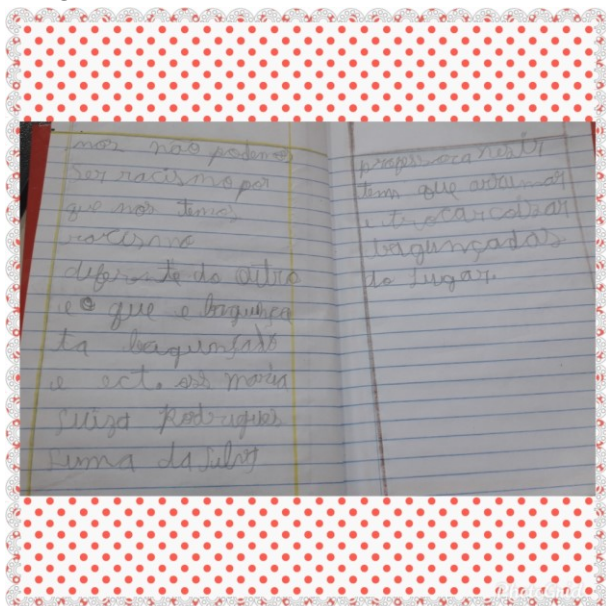 nos não podemos
ser racismo por
que nos temos
racismo
diferente do outro
e o que e bagunça
ta bagunçado
e ect. ass maria
Luiza Rodrigues
Luma da Silva
professora
tem que arrumar
e trocar coisas
bagunçadas
do lugar.